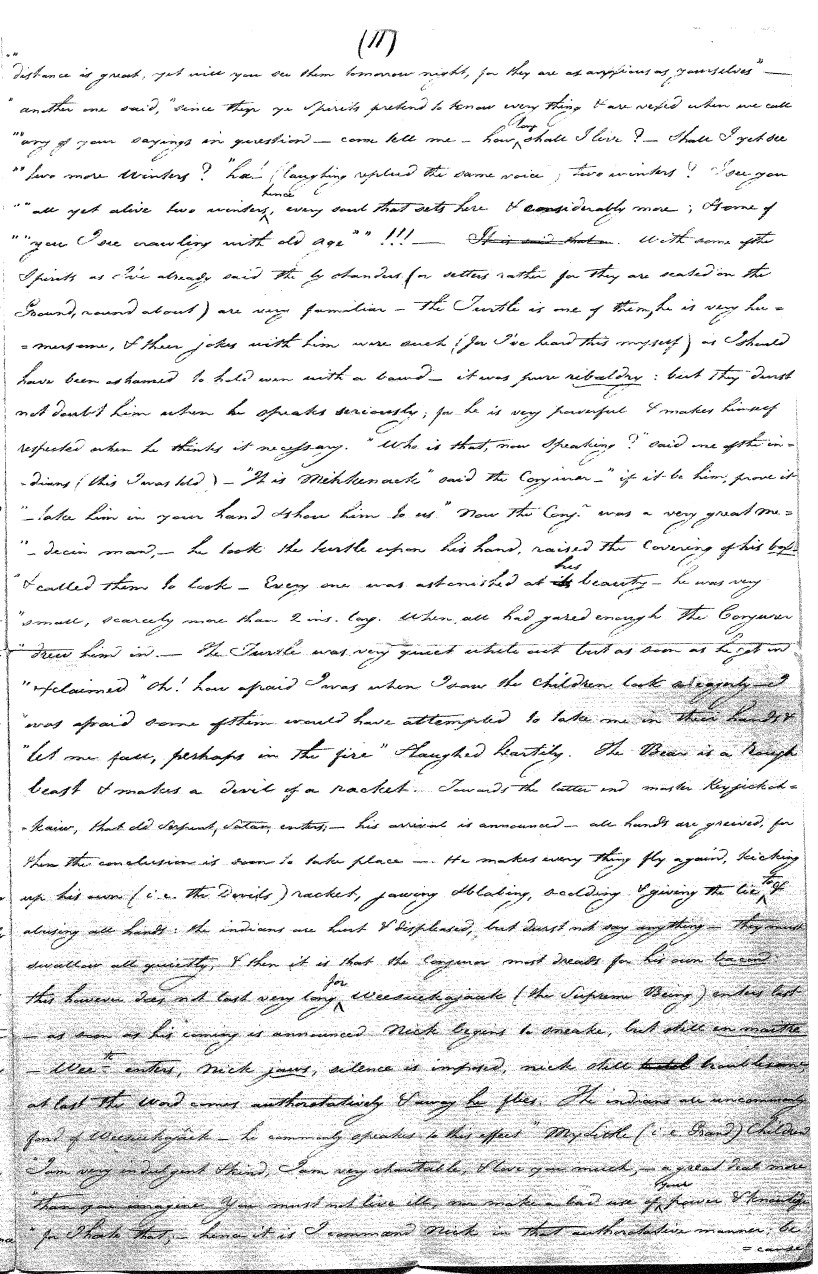 (11)
distance is great, yet will you see them tomorrow night, for they are as anxious as yourselves" —
" another one said, "since then ye Spirits pretend to know every thing & are vexed when we call
""any of your sayings in question — come tell me — how long shall I live? — shall I yet see
"" two more Winters? "ha! (laughing replied the same voice) two winters? I see you
"" all yet alive two winters hence, every soul that sets here & considerably more; & some of
"" "you I see crawling with old age" " !!! — It is said that a. With some of the
Spirits as I've already said the by standers (or setters rather for they are seated on the
Ground, round about) are very familiar — the Turtle is one of them, he is very hu=
=mersome, & their jokes with him were such (for I've heard this myself) as I should
have been ashamed to hold even with a bawd — it was pure ribaldry: but they durst
not doubt him when he speaks seriously; for he is very powerful & makes himself
respected when he thinks it necessary. "Who is that, now speaking?" said one of the in=
=dians (this I was told) — "It is Mihkenack" said the Conjurer — "if it be him, prove it
"— take him in your hand & show him to us" Now the Conj.r was a very great me=
"— decin man, — he took the turtle upon his hand, raised the Covering of his box
"& called them to look — Every one was astonished at its his beauty — he was very
"small, scarcely more than 2 ins. long. When all had gazed enough the Conjurer
" drew him in. — The Turtle was very quiet while out but as soon as he got in
"exclaimed "Oh! how afraid I was when I saw the children look so eagerly — I
"was afraid some of them would have attempted to take me in their hands &
"let me fall, perhaps in the fire" & laughed heartily. The Bear is a Rough
beast & makes a devil of a racket. Towards the latter end master Keyjickoh=
=kaiw, that old Serpent, Satan, enters; — his arrival is announced — all hands are greived, for
then the conclusion is soon to take place —. He makes every thing fly again, kicking
up his own (i. e. the Devils) racket, jawing & blabing, scolding & giving the lie to, &
abusing all hands: the indians are hurt & displeased, but durst not say anything — they must
swallow all quietly, & then it is that the Conjuror most dreads for his own bacon.
this however does not last very long, for Weesuckajaak (the Supreme Being) enters last
— as soon as his coming is announced Nick begins to sneake, but still en maitre
— Wee— th enters, Nick jaws, silence is imposed, nick still troublesome
at last the Word comes authoratatively & away he flies. The indians are uncommonly
fond of Weesuckajack — he commonly speakes to this effect "My Little (i e Grand) Children
"I am very indulgent & kind, I am very charitable, & love you much, — a great deal more
"than you imagine. You must not live ill, nor make a bad use of your power & knowledge
" for I hate that, — hence it is I command Nick in that authoratative manner: be
=cause